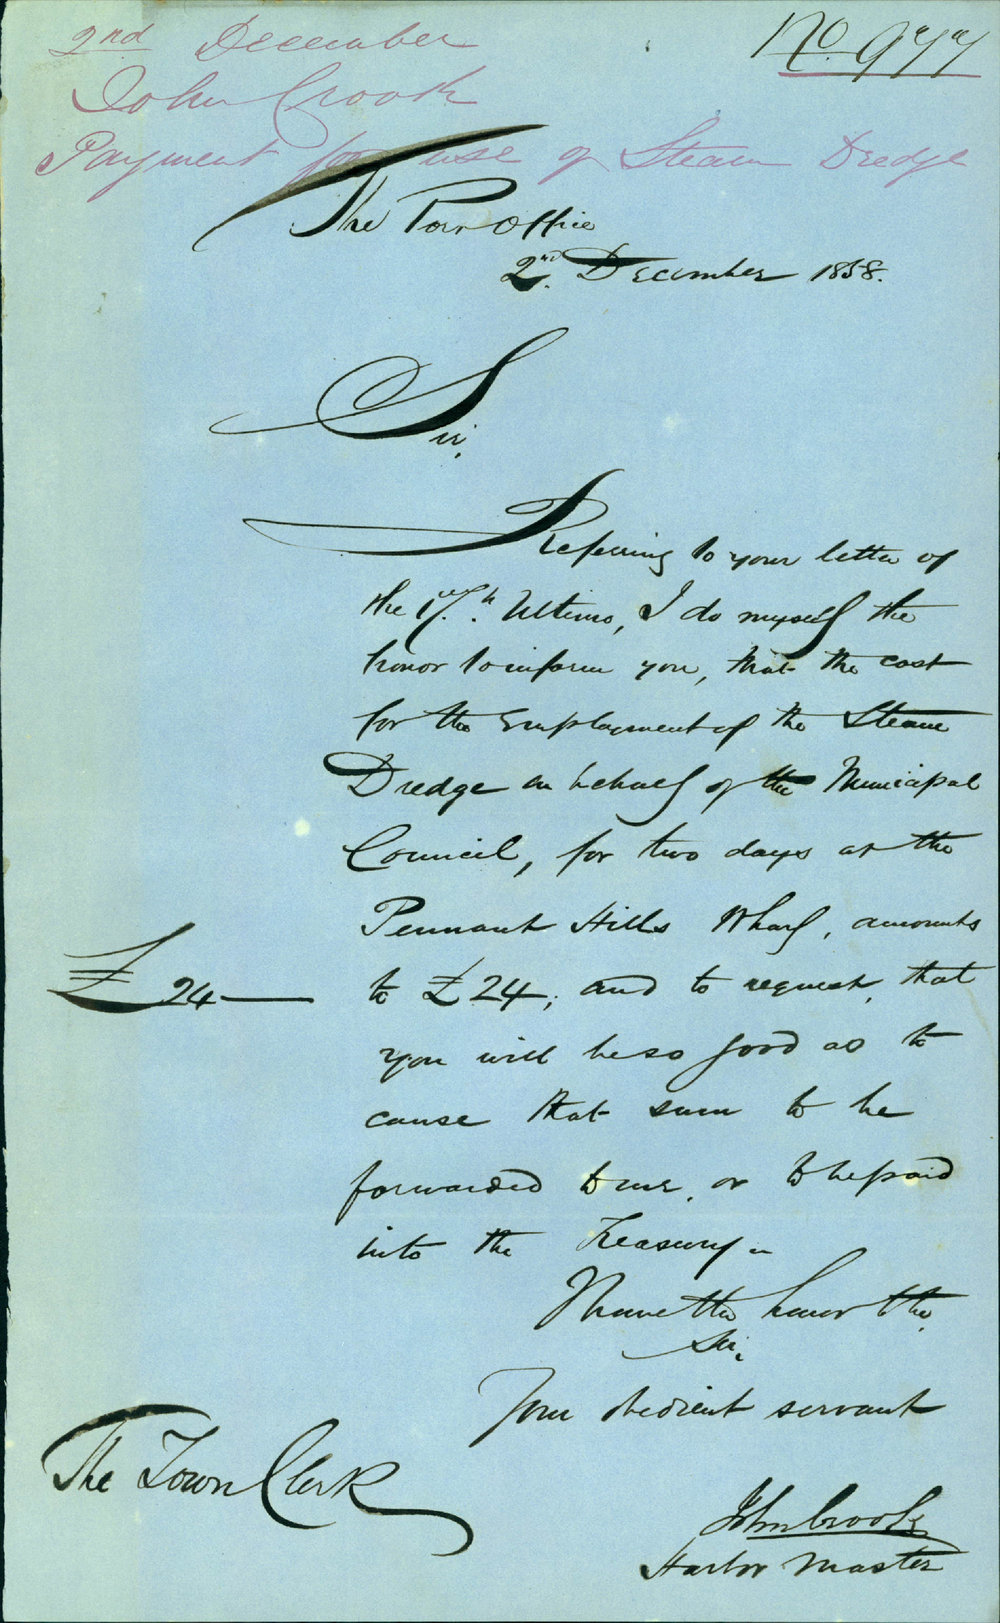 No. 977
2nd December
John Crook
Payment for use of Steam Dredge
The Port Office
2nd December 1858.
Sir,
Referring to your letter of
the 17th Ultimo, I do myself the
honor to inform you, that the cost
for the Employment of the Steam
Dredge on behalf of the Municipal
Council, for two days at the
Pennant Hills Wharf, amounts
£24 to £24; and to request, that
you will be so good as to
cause that sum to be
forwarded to me, or to be paid
into the Treasury
I have the honor
Sir,
Your obedient servant
The Town Clerk
John Crook
Harbor Master